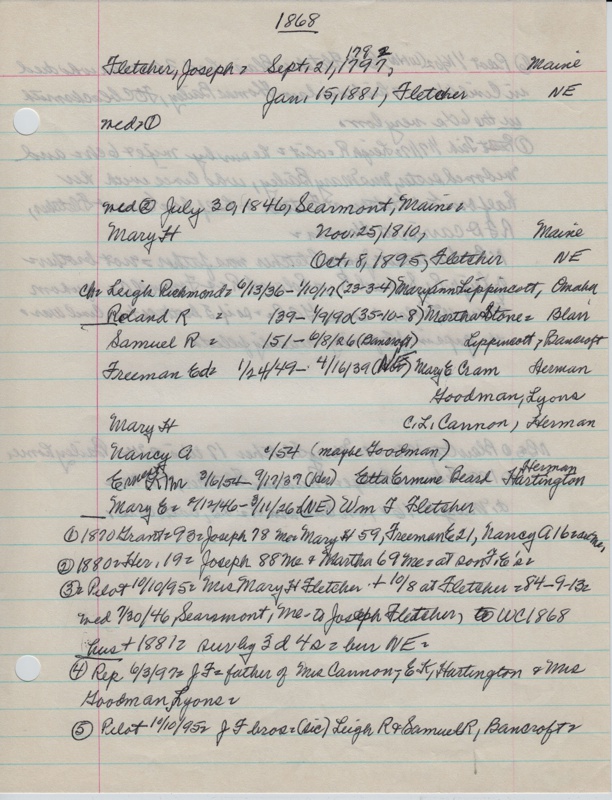 1868
1792
Fletcher, Joseph = Sept. 21, 1797, Maine
Jan. 15, 1881, Fletcher NE
med= ①
med ② July 30, 1846, Searmont, Maine=
Mary H Nov. 25, 1810, Maine
Oct. 8, 1895, Fletcher NE
ch= Leigh Richmond= 6/13/36- 1/10/17 (23-3-4) Maryann Lippincott, Omaha
Roland R = /39- 1/9/90 (35-10-8) Martha Stone= Blair
Samuel R = /51- 6/8/26 (Bancroft) Lippincott, Bancroft
Freeman Ed= 1/24/49- 4/16/39 (NE) Mary E Cram Herman
Goodman, Lyons
Mary H C. L. Cannon, Herman
Nancy A c/54 (maybe Goodman)
Ernest K Mr 2/6/54- 9/17/37 (Her) Etta Ermine Beard Herman Hartington
Mary E= 2/12/46- 3/11/26= (NE) Wm F Fletcher
① 1870 Grant= 93= Joseph 78 me= Mary H 59, Freeman E 21, Nancy A 16=
② 1880= Her, 19= Joseph 88 Me & Martha 69 Me= at son F. E's=
③= Pilot 10/10/95= Mrs Mary H Fletcher + 10/8 at Fletcher =84-9-13=
med 7/30/46, Searsmont, Me- to Joseph Fletcher, to WC 1868
hus + 1881= sur by 3 d 4 s= bur NE=
④ Rep 6/3/97= J F= father of Mrs Cannon-, E. K, Hartington & Mrs
Goodman, Lyons=
⑤ Pilot 10/10/95= J F bros= (sic) Leigh R & Samuel R, Bancroft=